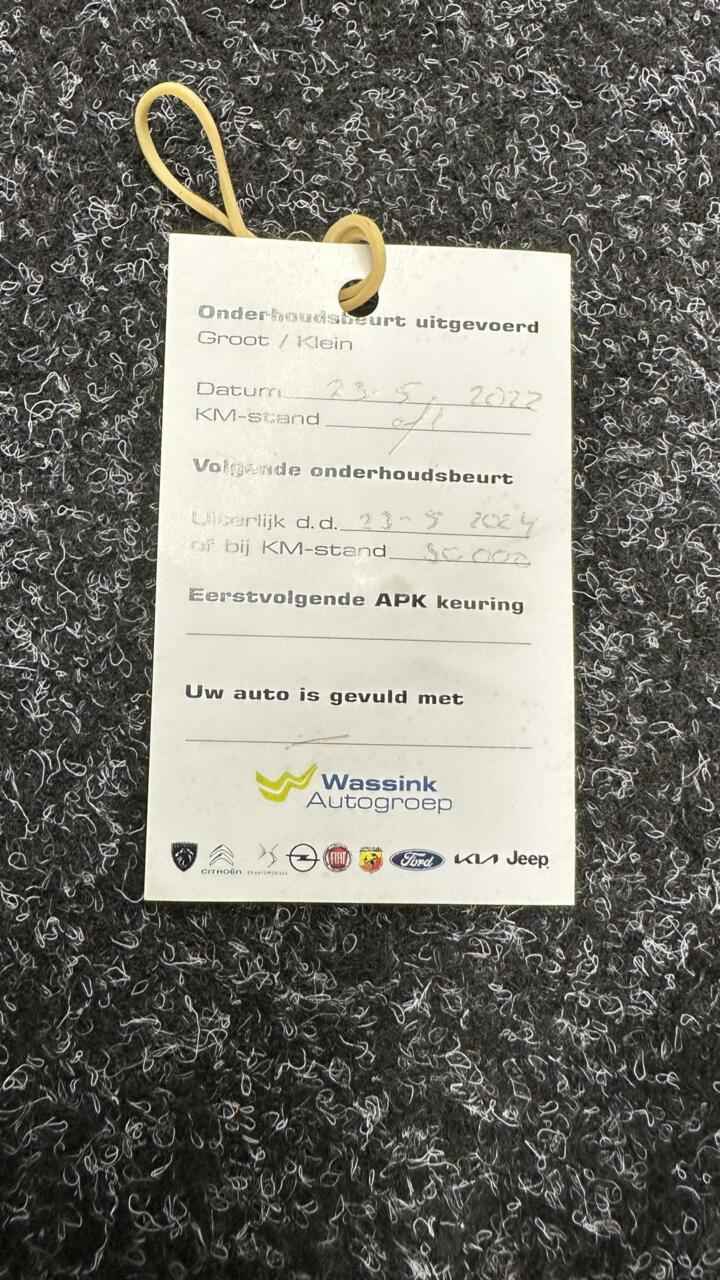 Onderhoudsbeurt uitgevoerd
Groot / Klein
Datum 23-5, 2022
KM-stand
Volgende onderhoudsbeurt
Uiterlijk d.d. 23-5 2024
of bij KM-stand
Eerstvolgende APK keuring
Uw auto is gevuld met
Wassink
Autogroep
CITROËN FIAT Ford KIA Jeep